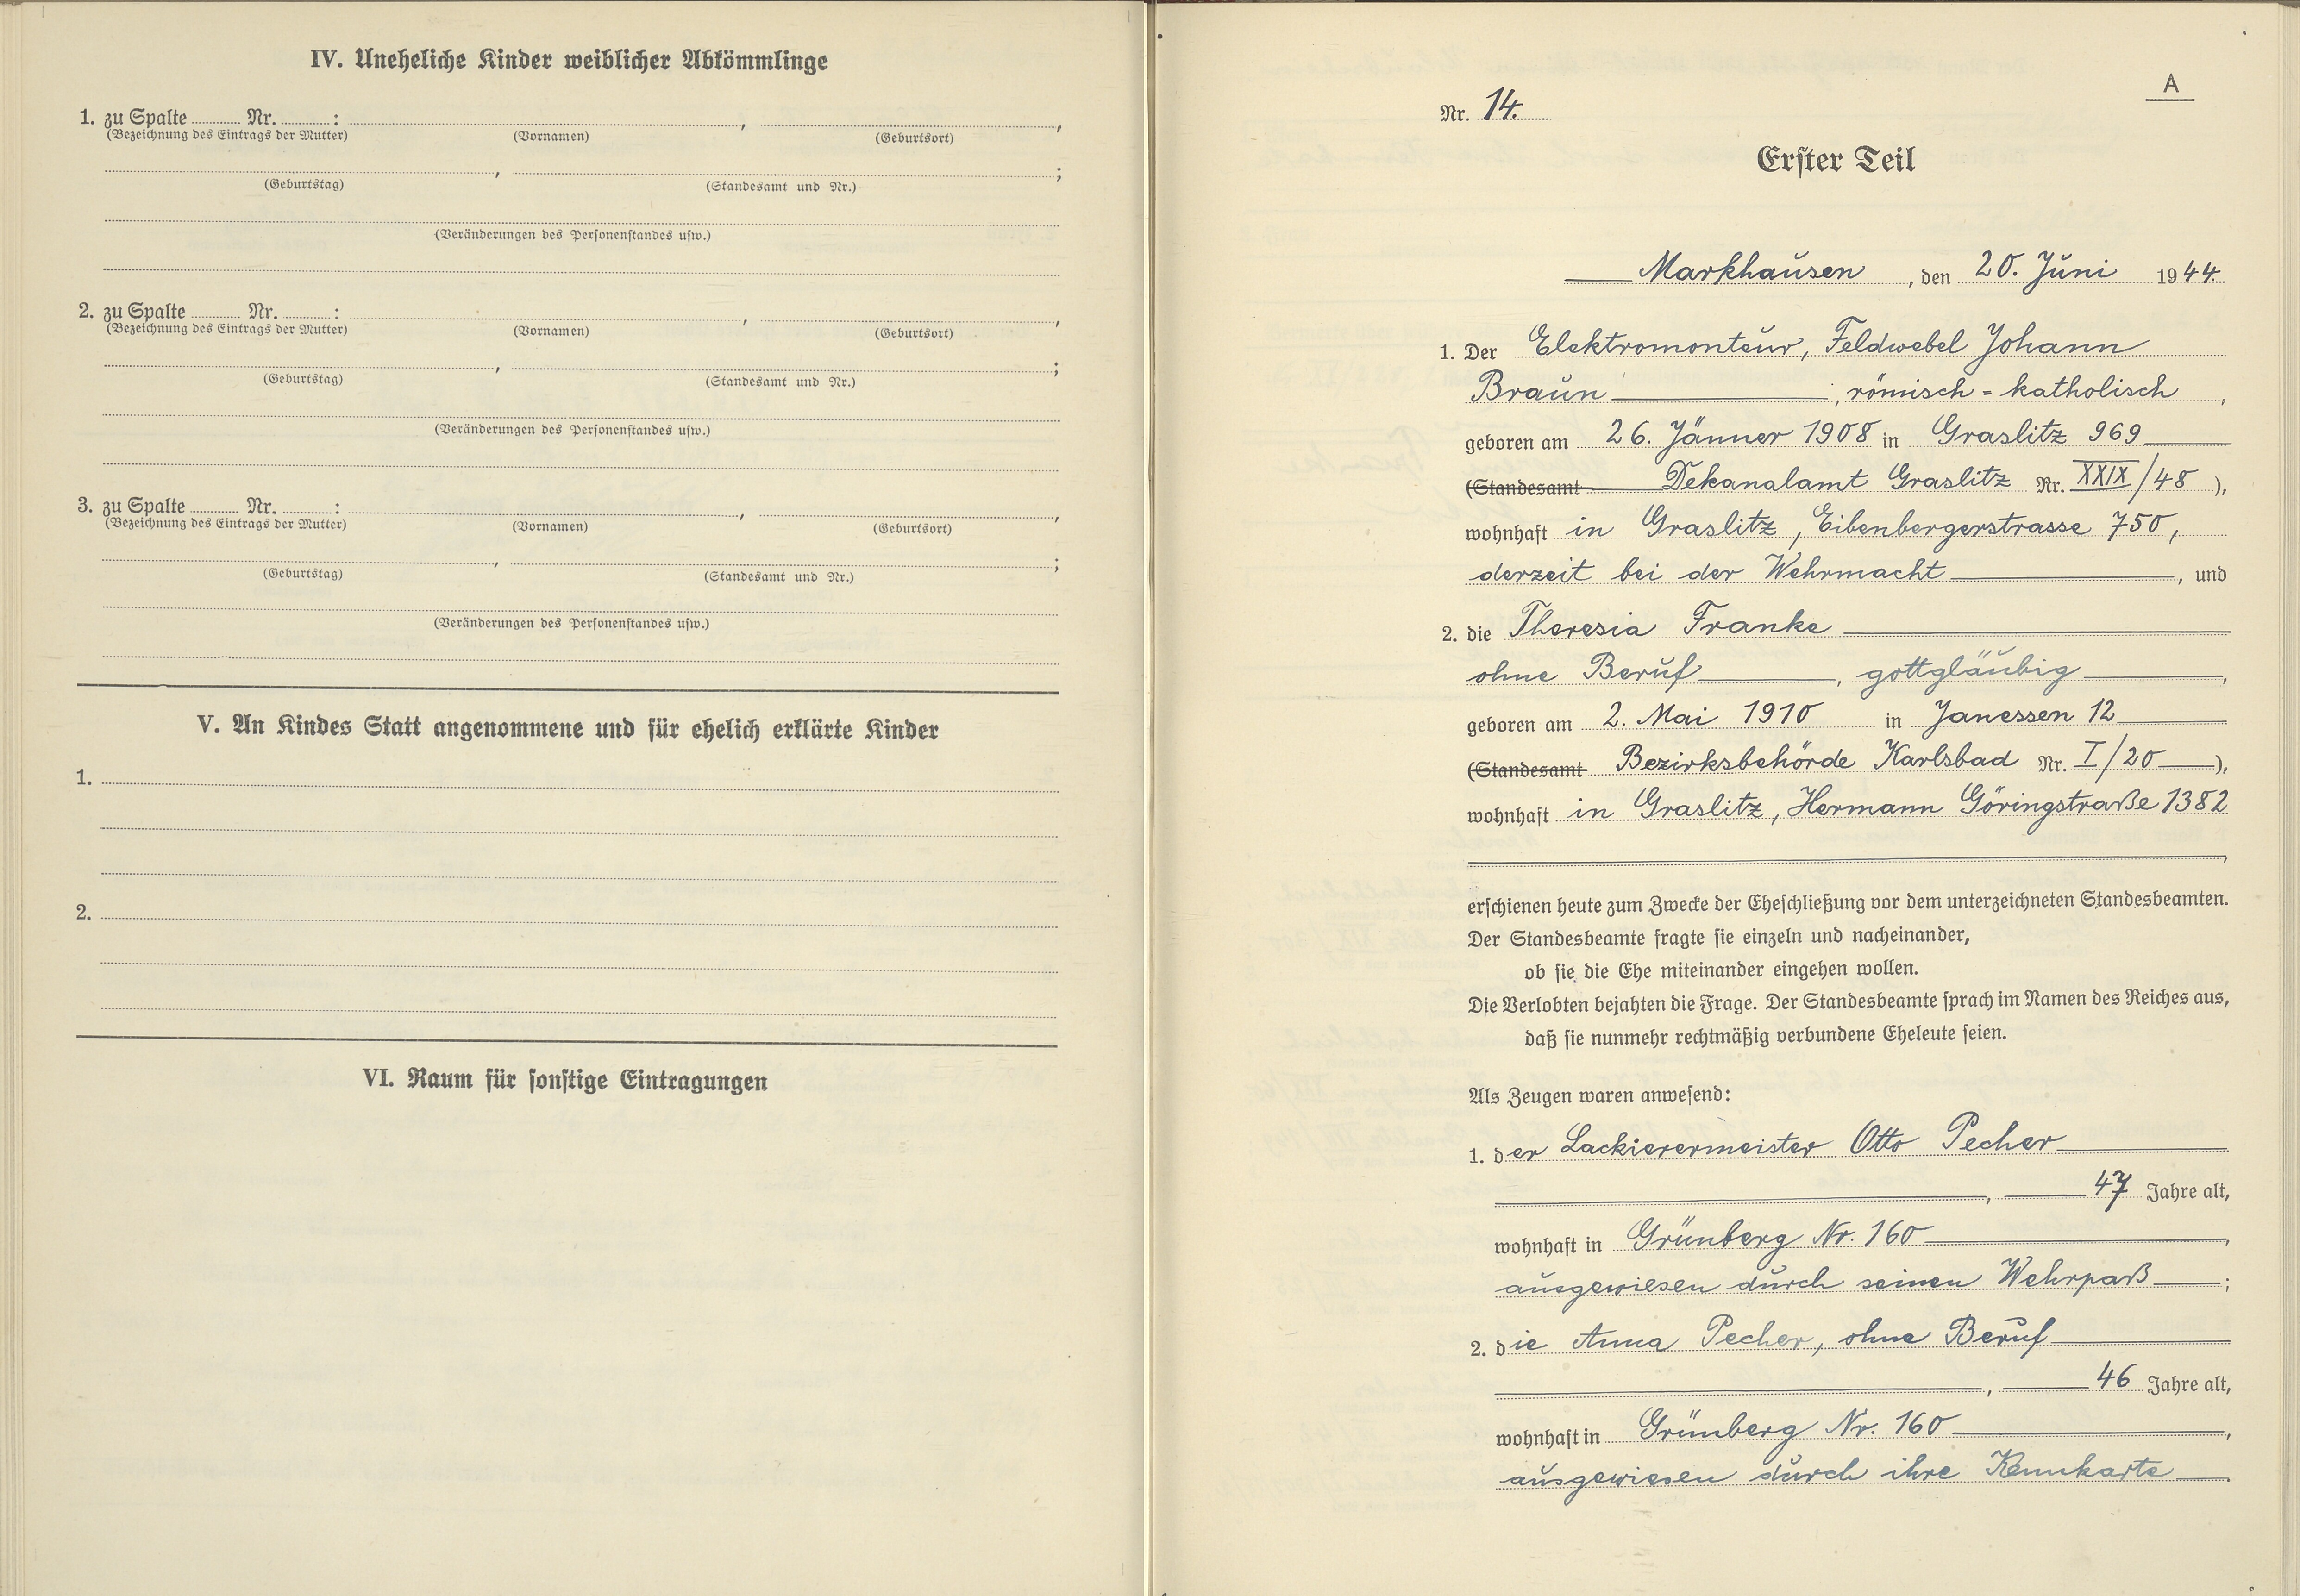 IV. Uneheliche Kinder weiblicher Abkömmlinge
1. zu Spalte ......... Nr. ......... :
(Bezeichnung des Eintrags der Mutter) (Vornamen) , (Geburtsort) ,
(Geburtstag) , (Standesamt und Nr.) ;
(Veränderungen des Personenstandes usw.)
2. zu Spalte ......... Nr. ......... :
(Bezeichnung des Eintrags der Mutter) (Vornamen) , (Geburtsort) ,
(Geburtstag) , (Standesamt und Nr.) ;
(Veränderungen des Personenstandes usw.)
3. zu Spalte ......... Nr. ......... :
(Bezeichnung des Eintrags der Mutter) (Vornamen) , (Geburtsort) ,
(Geburtstag) , (Standesamt und Nr.) ;
(Veränderungen des Personenstandes usw.)
V. An Kindes Statt angenommene und für ehelich erklärte Kinder
1.
2.
VI. Raum für sonstige Eintragungen
A
Nr. 14.
Erster Teil
Markhausen , den 20. Juni 1944.
1. Der Elektromonteur, Feldwebel Johann
Braun , römisch=katholisch ,
geboren am 26. Jänner 1908 in Graslitz 969
(Standesamt Dekanalamt Graslitz Nr. XXIX/48 ),
wohnhaft in Graslitz, Eibenbergerstrasse 750,
derzeit bei der Wehrmacht , und
2. die Theresia Franke
ohne Beruf , gottgläubig ,
geboren am 2. Mai 1910 in Janessen 12
(Standesamt Bezirksbehörde Karlsbad Nr. I/20 ),
wohnhaft in Graslitz, Hermann Göringstraße 1382
,
erschienen heute zum Zwecke der Eheschließung vor dem unterzeichneten Standesbeamten.
Der Standesbeamte fragte sie einzeln und nacheinander,
ob sie die Ehe miteinander eingehen wollen.
Die Verlobten bejahten die Frage. Der Standesbeamte sprach im Namen des Reiches aus,
daß sie nunmehr rechtmäßig verbundene Eheleute seien.
Als Zeugen waren anwesend:
1. der Lackierermeister Otto Pecher
, 47 Jahre alt,
wohnhaft in Grünberg Nr. 160 ,
ausgewiesen durch seinen Wehrpaß ;
2. die Anna Pecher, ohne Beruf
, 46 Jahre alt,
wohnhaft in Grünberg Nr. 160 ,
ausgewiesen durch ihre Kennkarte .